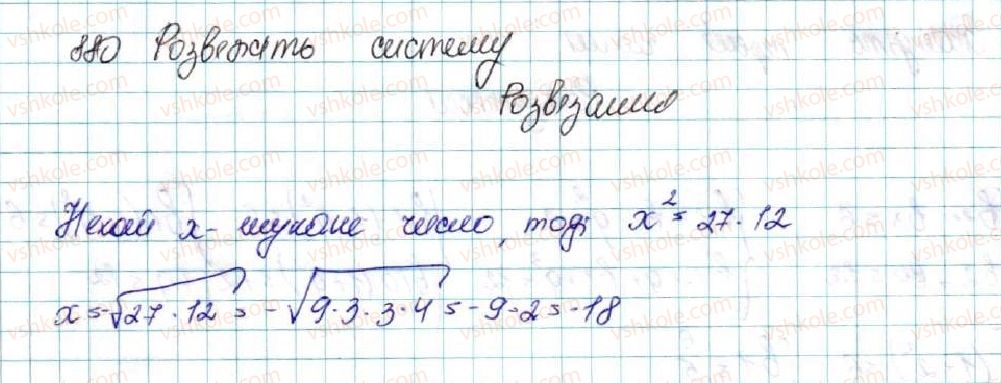 880 Розвежить систему
Розвезання
Нехай x - шукане число, тоді x² = 27 · 12
x = -√27 · 12 = -√9 · 3 · 3 · 4 = -9 · 2 = -18